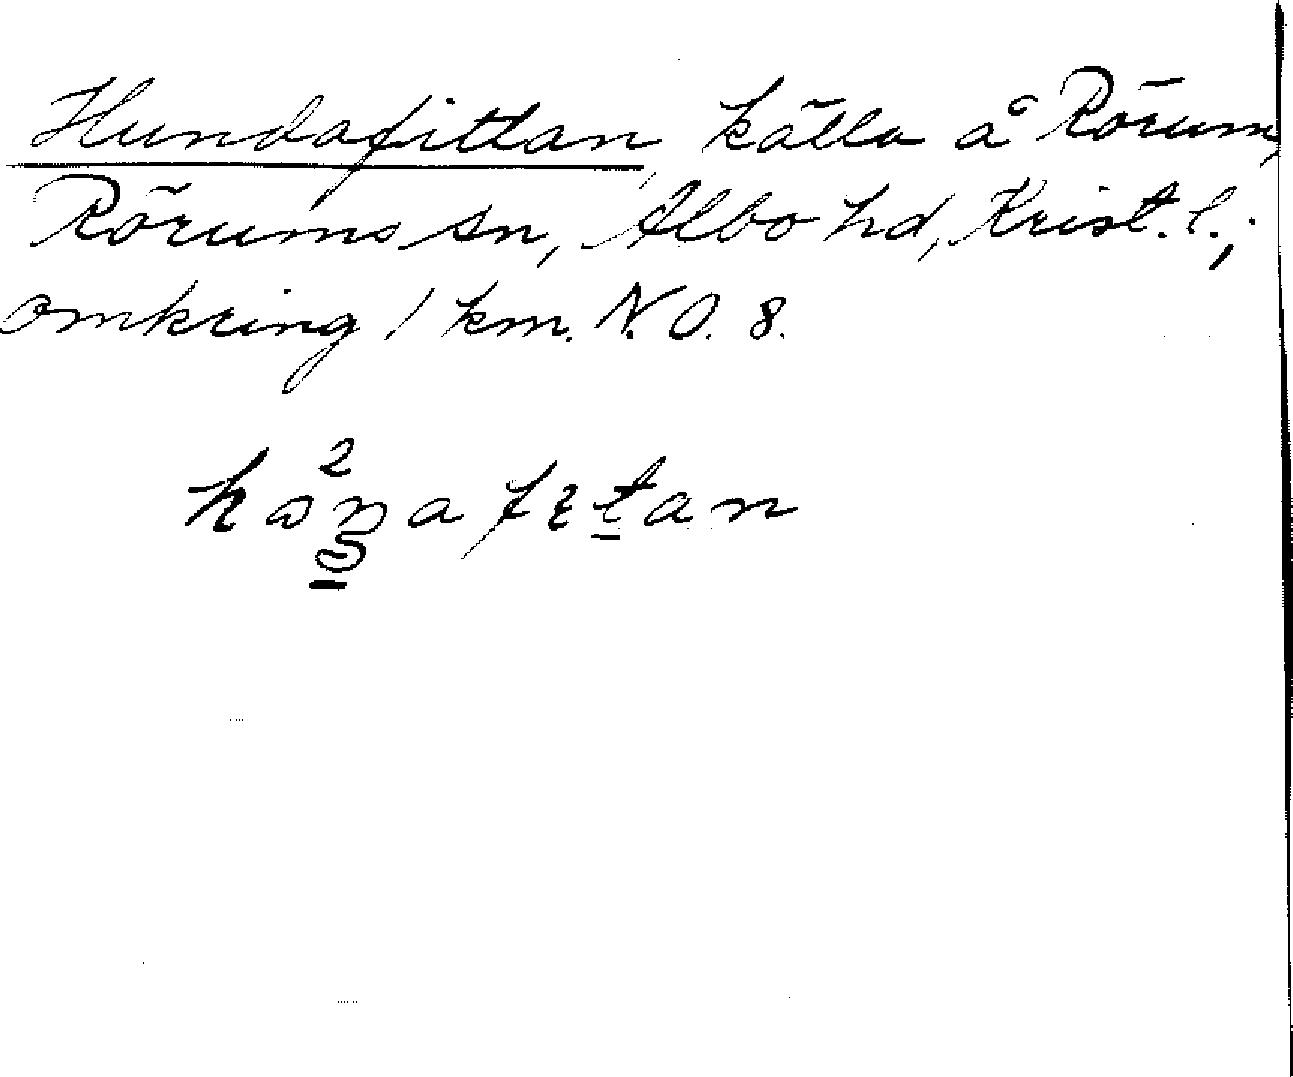 Hundafittan, källa å Rörum,
Rörums sn, Albo hd, Krist. l.;
omkring 1 km. N.O. 8.